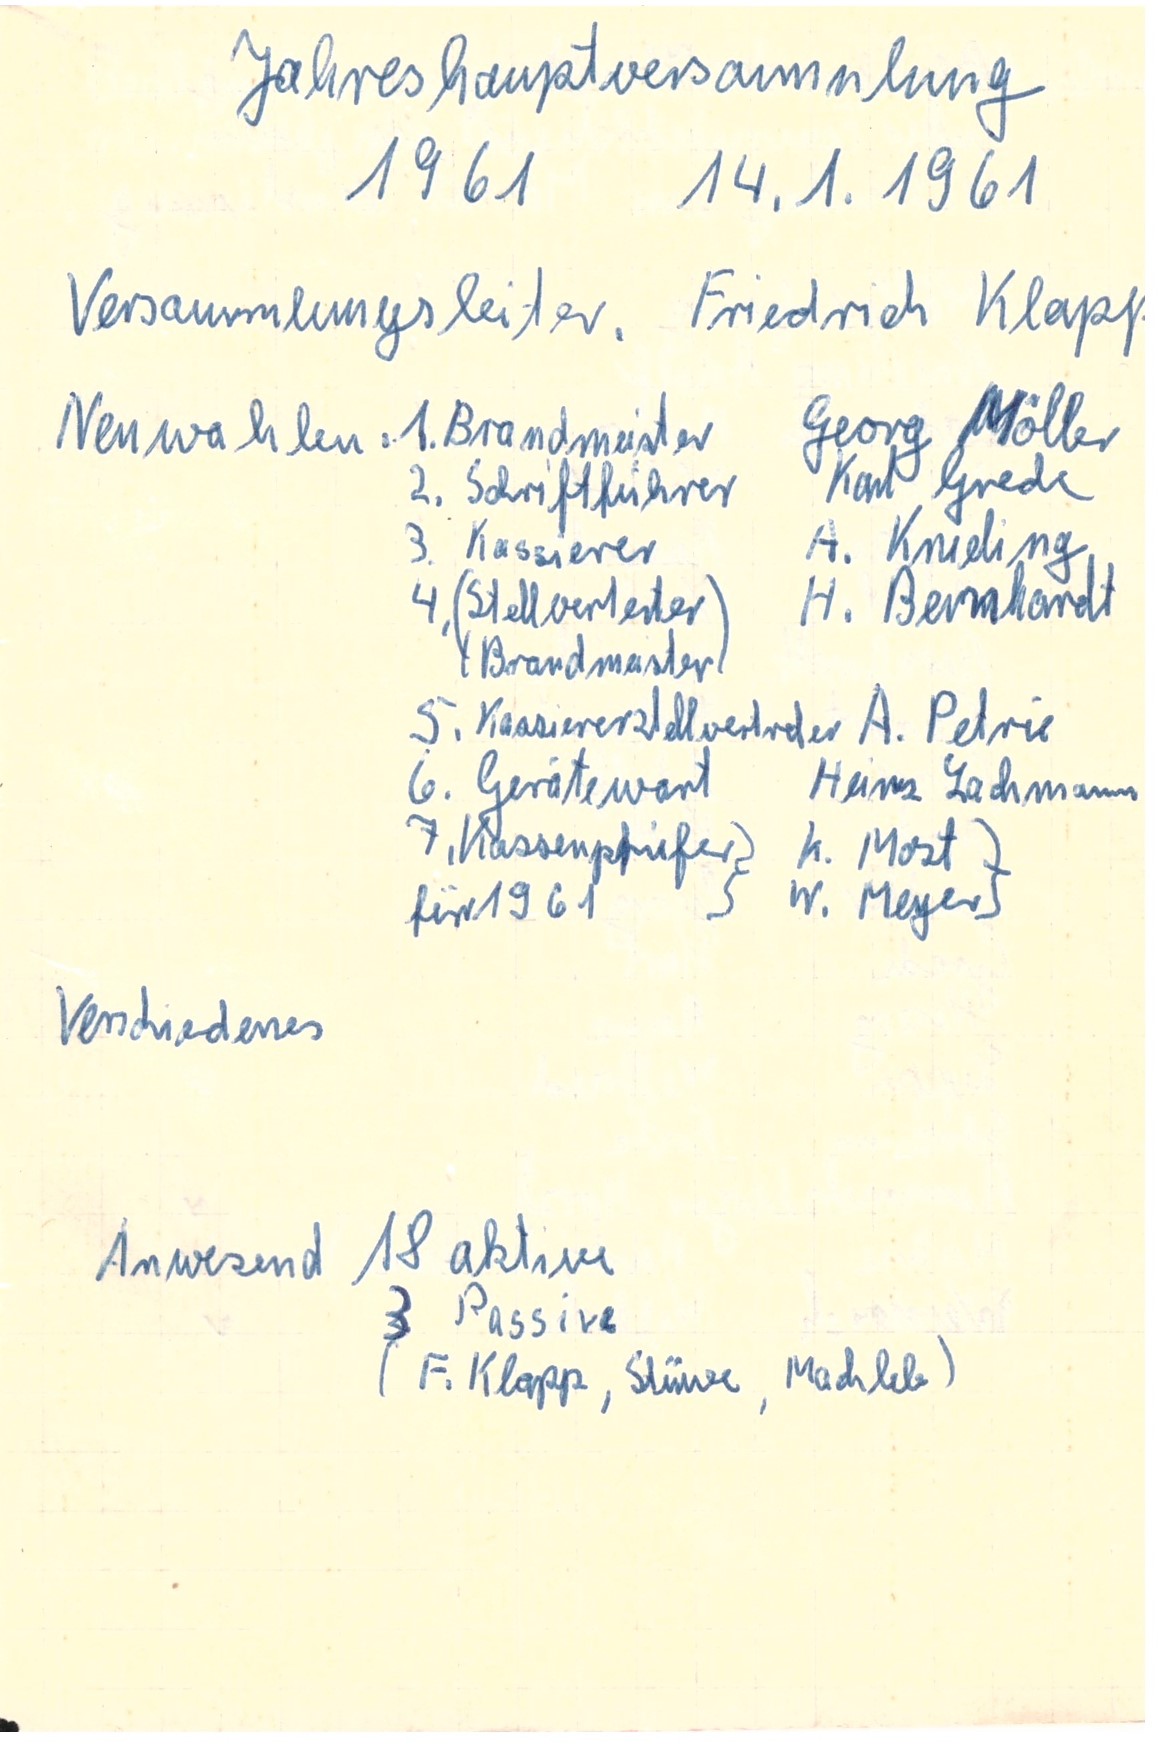 Jahreshauptversammlung
1961 14.1.1961
Versammlungsleiter. Friedrich Klapp
Neuwahlen: 1. Brandmeister Georg Möller
2. Schriftführer Karl Grede
3. Kassierer A. Knieling
4. (Stellvertreter) H. Bernhardt
(Brandmeister)
5. Kassiererstellvertreter A. Petrie
6. Gerätewart Heinz Lachmann
7. Kassenprüfer } K. Most }
für 1961 } W. Meyer }
Verschiedenes
Anwesend 18 aktive
3 Passive
(F. Klapp, Stüwe, Machleb)